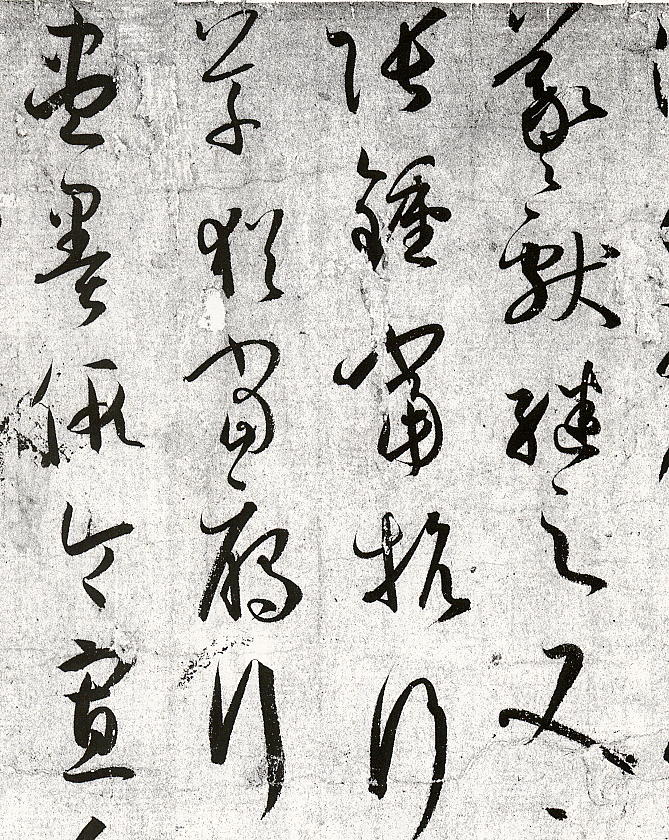 羲獻繼之又
張鍾當抗行
草猶當鴈行
盡墨假令寡